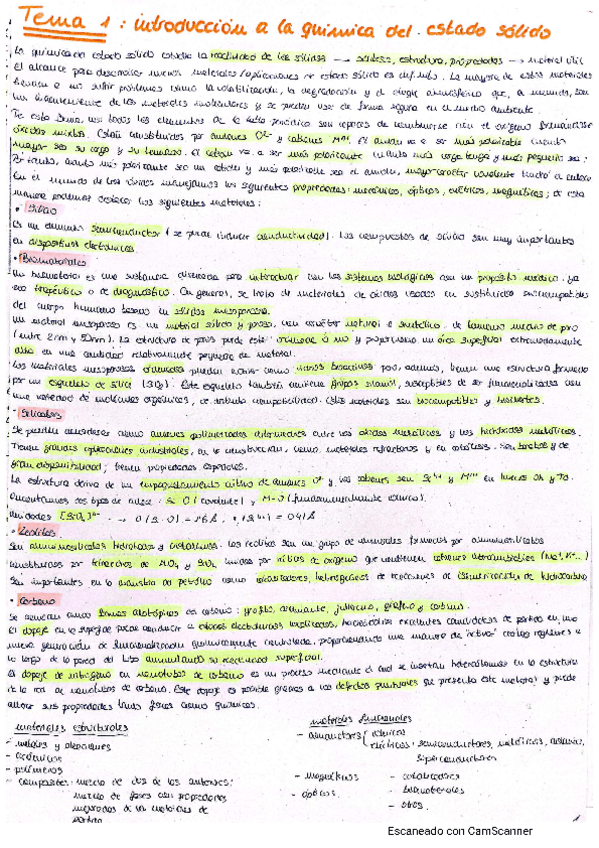 Tema 1: introducción a la química del estado sólido
La química del estado sólido estudia la reactividad de los sólidos → síntesis, estructura, propiedades → material útil
El alcance para desarrollar nuevos materiales/aplicaciones de estado sólido es infinito. La mayoría de estos materiales
tienden a no sufrir problemas como la volatilización, la degradación y el ataque atmosférico que, a menudo, son
un inconveniente de los materiales moleculares y se pueden usar de forma segura en el medio ambiente.
De esta forma, casi todos los elementos de la tabla periódica son capaces de combinarse con el oxígeno formando
óxidos mixtos. Están constituidos por aniones O²⁻ y cationes Mⁿ⁺. El anión va a ser más polarizable cuanto
mayor sea su carga y su tamaño. El catión va a ser más polarizante cuanto más carga tenga y más pequeño sea.
Por tanto, cuanto más polarizante sea un catión y más polarizable sea el anión, mayor carácter covalente tendrá el enlace
En el mundo de los óxidos manejamos las siguientes propiedades: mecánicas, ópticas, eléctricas, magnéticas; de esta
manera podemos destacar los siguientes materiales:
• Silicio
Es un elemento semiconductor (se puede inducir conductividad). Los compuestos de silicio son muy importantes
en dispositivos electrónicos.
• Biomateriales
Un biomaterial es una sustancia diseñada para interactuar con los sistemas biológicos con un propósito médico, ya
sea terapéutico o de diagnóstico. En general, se trata de materiales de óxidos usados en sustitución
del cuerpo humano basados en sólidos mesoporosos.
Un material mesoporoso es un material sólido y poroso, con carácter natural o sintético, de tamaño medio de poro
(entre 2nm y 50nm). La estructura de poros puede estar ordenada o no y proporciona un área superficial extremadamente
alta en una cantidad relativamente pequeña de material.
Los materiales mesoporosos ordenados pueden actuar como vidrios bioactivos pero, además, tienen una estructura formada
por un esqueleto de sílice (SiO₂). Este esqueleto también contiene grupos silanol, susceptibles de ser funcionalizados con
una variedad de moléculas orgánicas, de estudio Estos materiales son biocompatibles y
• Silicatos
Se pueden considerar como aniones polimerizados intermedios entre los óxidos metálicos y los hidróxidos metálicos.
Tienen grandes aplicaciones industriales, en la construcción, como materiales refractarios o en catálisis. Son baratos y de
gran disponibilidad; tienen propiedades especiales.
La estructura deriva de un empaquetamiento cúbico de aniones O²⁻ y los cationes son Si⁴⁺ y Mⁿ⁺ en huecos Oh y Td.
Encontramos dos tipos de enlace: Si-O (covalente) y M-O (fundamentalmente iónico).
Unidades [SiO₄]⁴⁻
• Zeolitas
Son aluminosilicatos hidratados y cristalinos. Las zeolitas son un grupo de minerales formados por aluminosilicatos
constituidos por tetraedros de AlO₄ y SiO₄ unidos por átomos de oxígeno que contienen cationes intercambiables (Na⁺, K⁺...)
Son importantes en la industria del petróleo como catalizadores heterogéneos de reacciones de isomerización de hidrocarburo
• Carbono
Se conocen cinco formas alotrópicas de carbono: grafito, diamante, fullereno, grafeno y carbino.
El dopaje en la superficie puede conducir a efectos electrónicos
nueva generación de funcionalización químicamente controlada, proporcionando una manera de "activar" ciertas regiones a
lo largo de la pared del tubo aumentando su reactividad superficial.
El dopaje de nitrógeno en nanotubos de carbono es un proceso mediante el cual se insertan heteroátomos en la estructura
de la red de nanotubos de carbono. Este dopaje es posible gracias a los defectos puntuales que presenta este material y puede
alterar sus propiedades tanto físicas como químicas.
materiales estructurales
- metales y aleaciones
- cerámicos
- polímeros
- composites: mezcla de dos de los anteriores;
mezcla de fases con propiedades
mejoradas de los materiales de
partida
materiales funcionales
- conductores { iónicos
eléctricos: semiconductores, metálicos,
superconductores
- magnéticos
- ópticos
- catalizadores
- biomateriales
- otros.
Escaneado con CamScanner